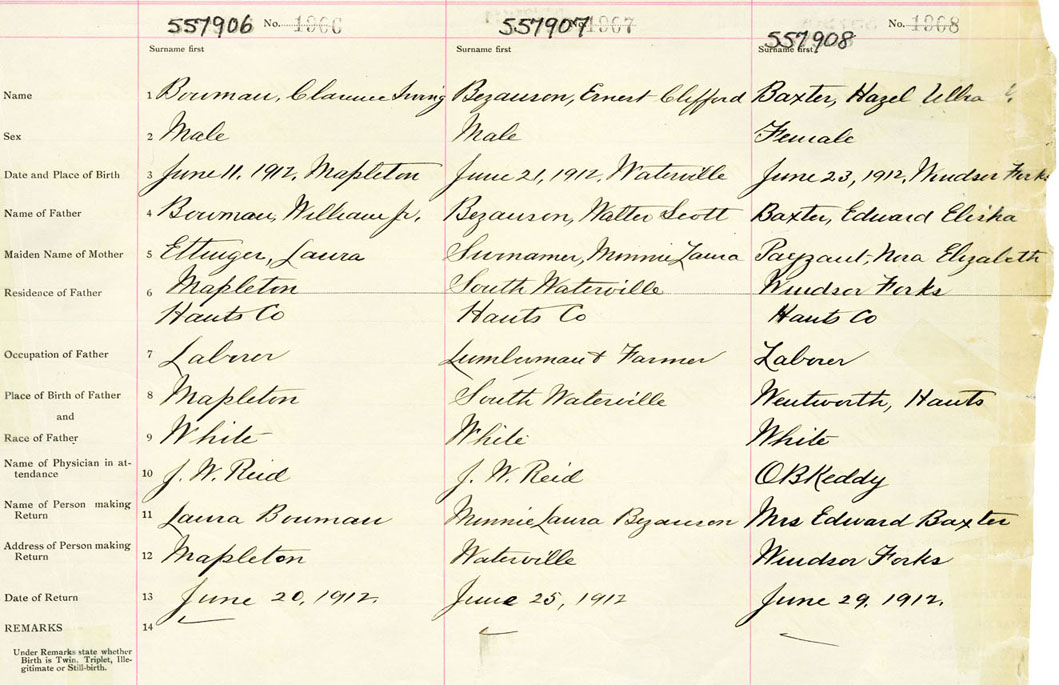 557906 No. 1906 557907 No. 1907 557908 No. 1908
Surname first Surname first Surname first
Name 1 Bowman, Clarence Irving Bezanson, Ernest Clifford Baxter, Hazel
Sex 2 Male Male Female
Date and Place of Birth 3 June 11, 1912, Mapleton June 21, 1912, Waterville June 23, 1912, Windsor Forks
Name of Father 4 Bowman, William Jr. Bezanson, Walter Scott Baxter, Edward Elisha
Maiden Name of Mother 5 Ettinger, Laura Minnie Laura Payzant, Nora Elizabeth
Residence of Father 6 Mapleton South Waterville Windsor Forks
Hants Co Hants Co Hants Co
Occupation of Father 7 Laborer Lumberman & Farmer Laborer
Place of Birth of Father 8 Mapleton South Waterville Wentworth, Hants
and
Race of Father 9 White White White
Name of Physician in at-
tendance 10 J. W. Reid J. W. Reid O B Keddy
Name of Person making
Return 11 Laura Bowman Minnie Laura Bezanson Mrs Edward Baxter
Address of Person making
Return 12 Mapleton Waterville Windsor Forks
Date of Return 13 June 20, 1912. June 25, 1912 June 29, 1912.
REMARKS 14
Under Remarks state whether
Birth is Twin, Triplet, Ille-
gitimate or Still-birth.